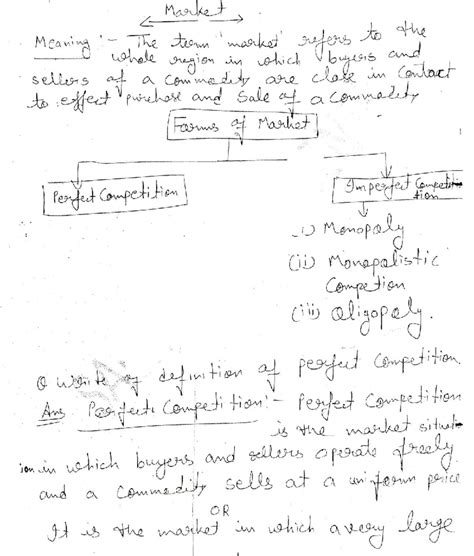 Market
Meaning :- The term 'market' refers to the
whole region in which buyers and
sellers of a commodity are close in contact
to effect purchase and sale of a commodity
Forms of Market
Perfect Competition
Imperfect Competi-
tion
i) Monopoly
(ii) Monopolistic
Competion
(iii) Oligopoly.
Q write of definition of perfect competition
Ans Perfect Competition :- Perfect Competition
is the market situat-
ion in which buyers and sellers operate freely
and a commodity sells at a uniform price
OR
It is the market in which a very large